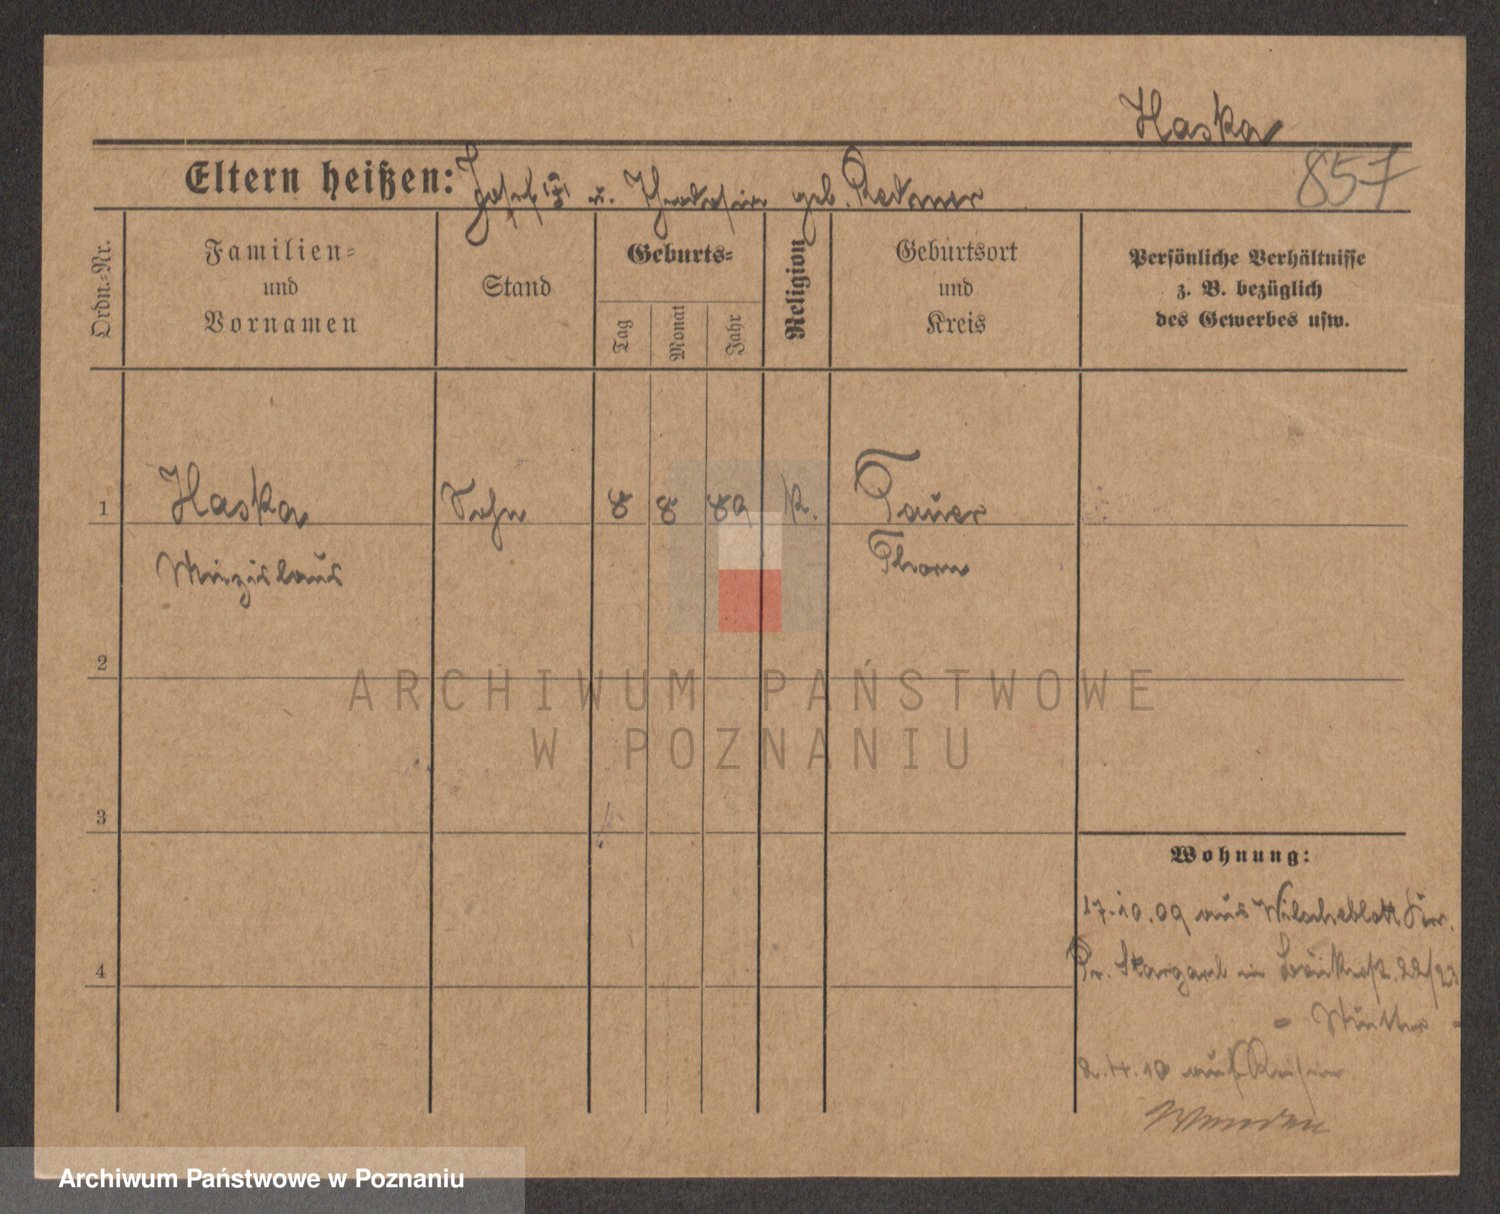 Haska
857
Eltern heißen: Josef u. Theodosia geb. Redmer
Ordn.-Nr.
Familien-
und
Vornamen
Stand
Geburts-
Tag
Monat
Jahr
Religion
Geburtsort
und
Kreis
Persönliche Verhältnisse
z. B. bezüglich
des Gewerbes usw.
1
Haska
Sohn
8
8
89
k.
Tauer
Mizislaus
Thorn
2
ARCHIWUM PAŃSTWOWE
W POZNANIU
3
Wohnung:
17.10.09 aus Wilscheblott
4
Pr. Stargard in Bäckerst. 22/23
- Mutter -
2.4.10 auf Reisen
Wenden
Archiwum Państwowe w Poznaniu